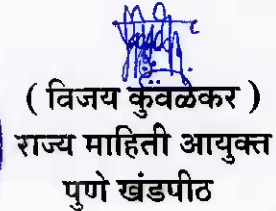 ( विजय कुंवळेकर )
राज्य माहिती आयुक्त
पुणे खंडपीठ